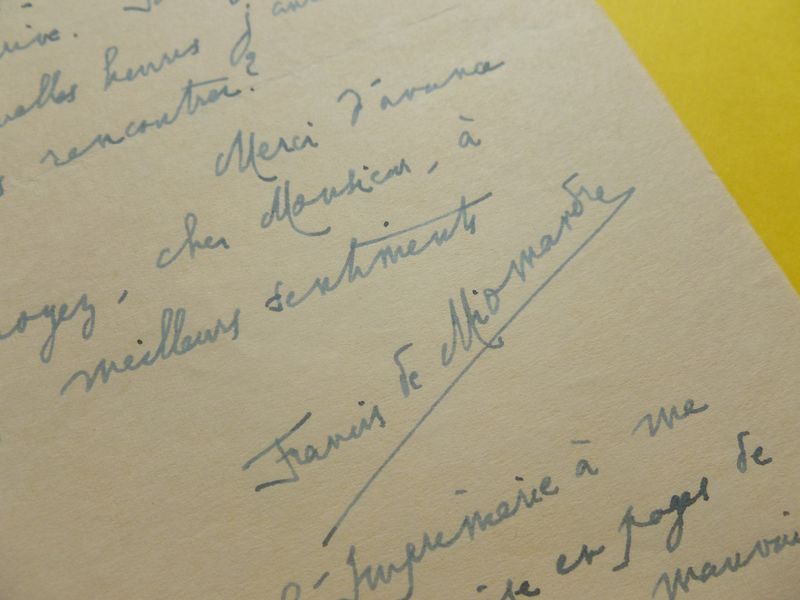 heures
rencontrer?
Merci d'avance
cher Monsieur, à
meilleurs sentiments
Francis de Miomandre
l'Imprimerie à me
en pages de
mauvai